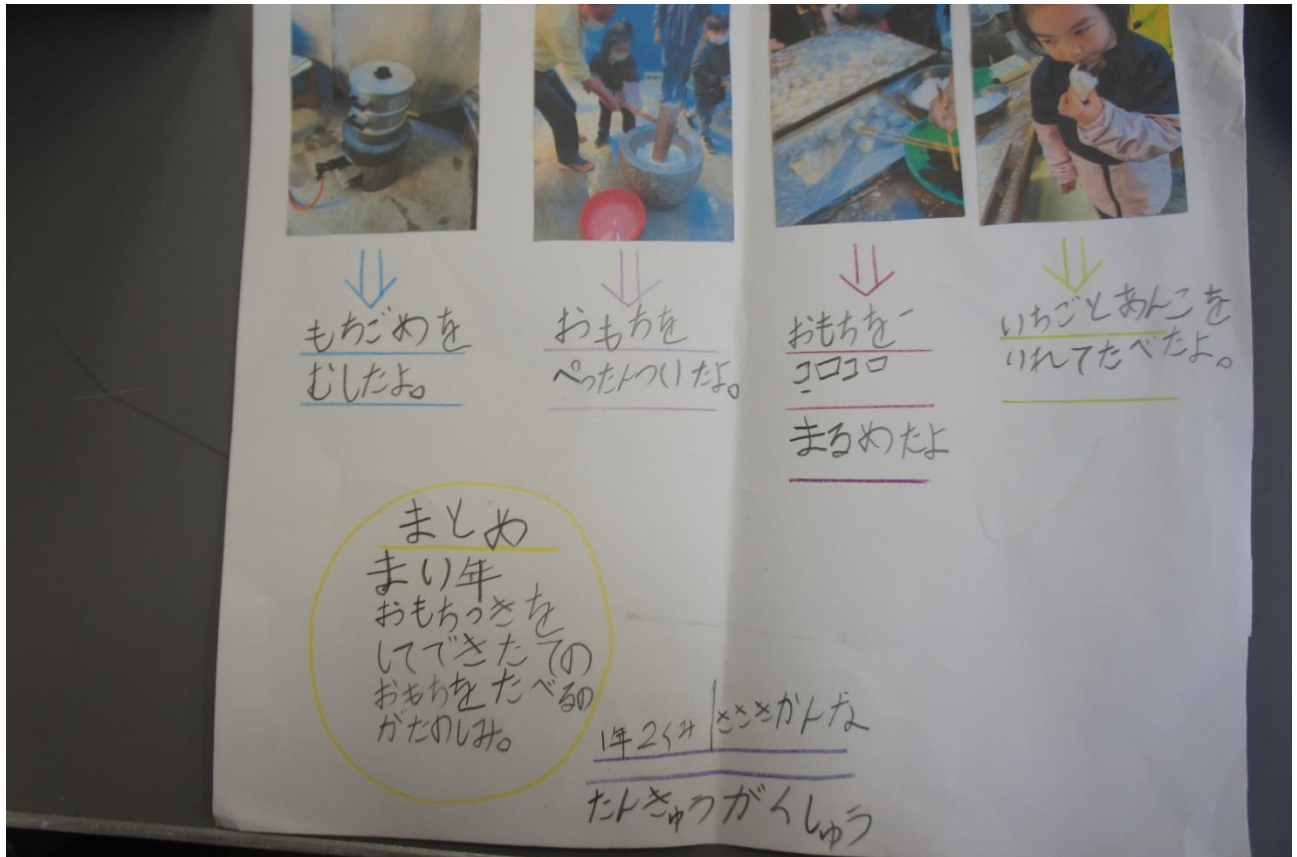 もちごめを
むしたよ。
おもちを
ぺったんついたよ。
おもちを
コロコロ
まるめたよ
いちごとあんこを
いれてたべたよ。
まとめ
まい年
おもちつきを
してできたての
おもちをたべるの
がたのしみ。
1年2くみ ささきかんな
たんきゅうがくしゅう